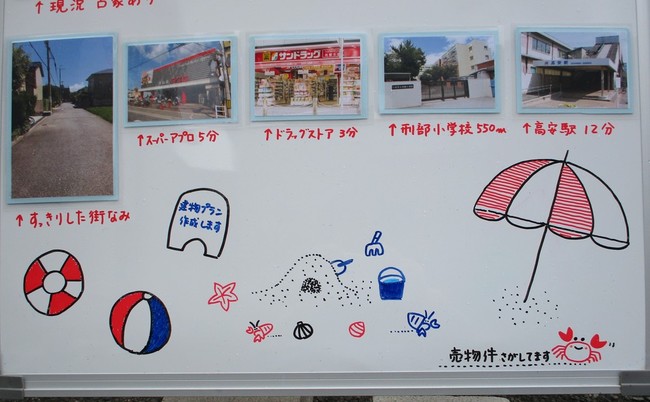 ↑現況 古家あり
サンドラッグ
↑スーパーアプロ 5分
↑ドラッグストア 3分
↑刑部小学校 550m
↑高安駅 12分
↑すっきりした街なみ
建物プラン
作成します
売物件 さがしてます